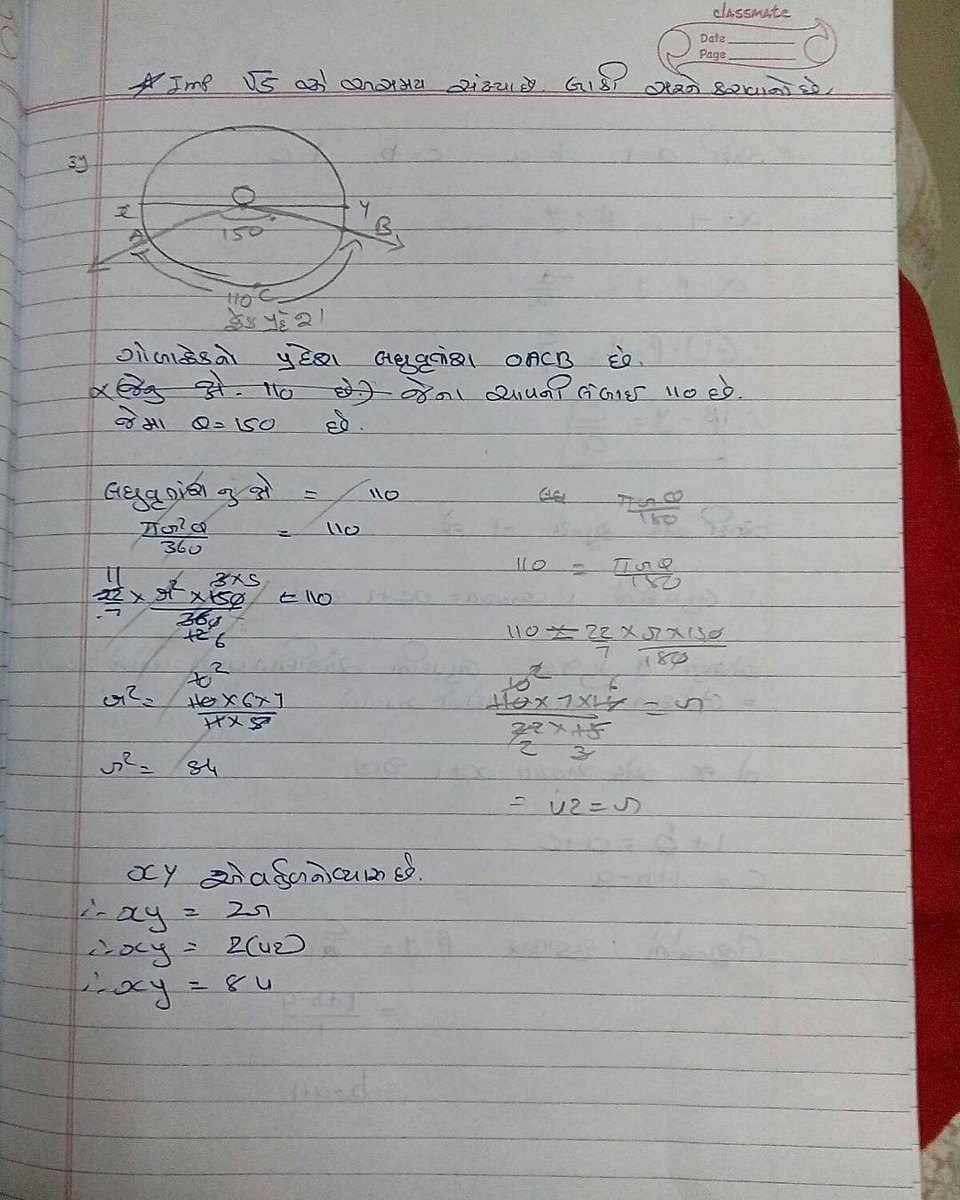 classmate
Date
Page
Imp √5 એ અસમય સંખ્યા છે. બાકી
34
O
x y
A B
150°
110°C
ગોળાકેડનો પ્રદેશ લઘુવૃતાંશ OACB છે.
જેના ચાપની લંબાઇ 110 છે.
જેમા θ = 150 છે.
લઘુવૃતાંશ નુ ક્ષે = 110
πr²θ/360 = 110
22/7 × r² × 150/360 = 110
r² = 110×6×7/11×5
r² = 84
πrθ/180
110 = πrθ/180
110 = 22/7 × r×150/180
110×7×18/22×15 = r
= 42 = r
xy એ વર્તુળનો વ્યાસ છે.
∴ xy = 2r
∴ xy = 2(42)
∴ xy = 84